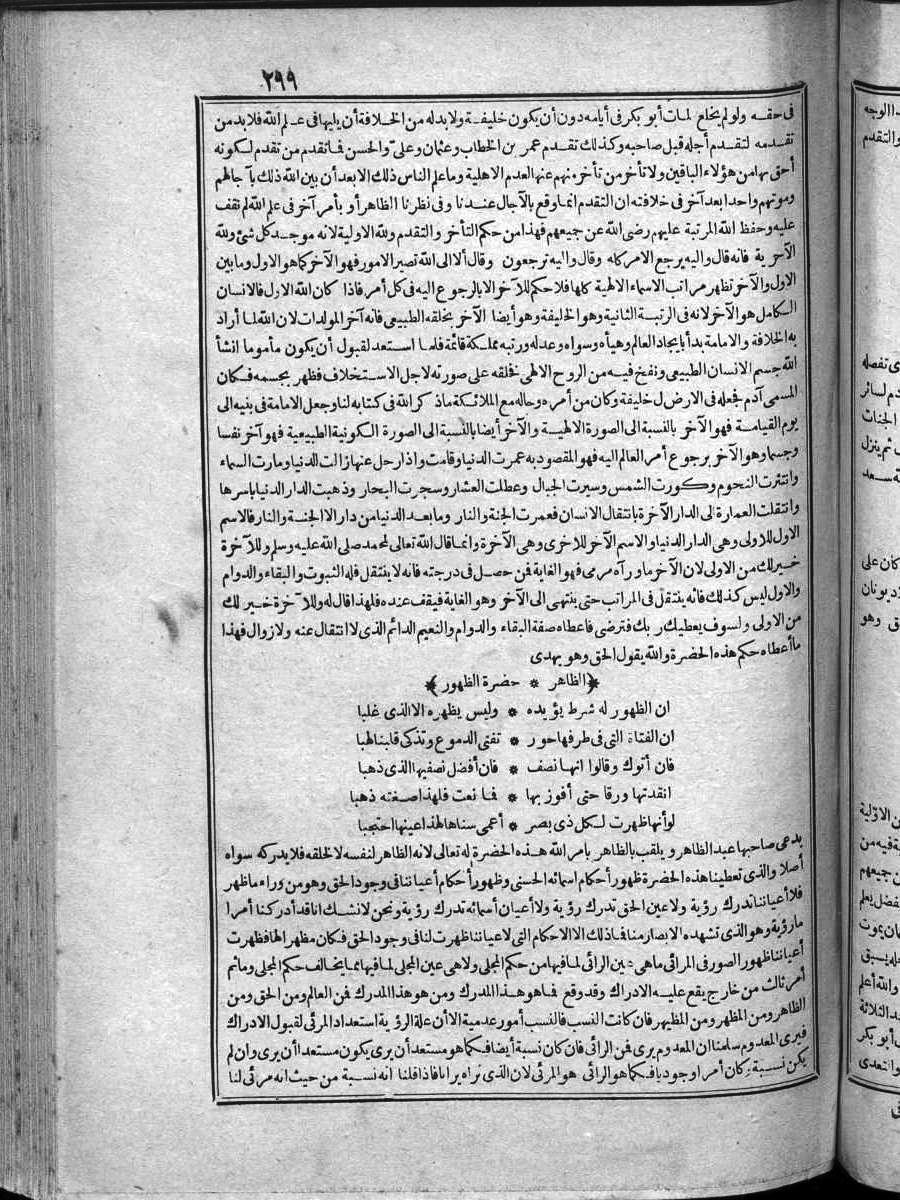 ٢٩٩
فى حقه ولولم يخلع لمات أبو بكر فى أيامه دون أن يكون خليفة ولابد له من الخلافة أن يليها فى علم الله فلابد من
تقدمه لتقدم أجله قبل صاحبه وكذلك تقدم عمر بن الخطاب وعثمان وعلى والحسن فما تقدم من تقدم لكونه
أحق بها من هؤلاء الباقين ولا تأخر من تأخر منهم عنها لعدم الاهلية وما علم الناس ذلك الا بعد أن بين الله ذلك بآجالهم
وموتهم واحدا بعد آخر فى خلافته ان التقدم انما وقع بالآجال عندنا وفى نظرنا الظاهر أو بأمر آخر فى علم الله لم نقف
عليه وحفظ الله المرتبة عليهم رضى الله عن جميعهم فهذا من حكم التأخر والتقدم ولله الاولية لانه موجد كل شئ ولله
الآخرية فانه قال واليه يرجع الامر كله وقال واليه ترجعون وقال ألا الى الله تصير الامور فهو الآخر كما هو الاول وما بين
الاول والآخر تظهر مراتب الاسماء الالهية كلها فلا حكم للآخر الا بالرجوع اليه فى كل أمر فاذا كان الله الاول فالانسان
الكامل هو الآخر لانه فى الرتبة الثانية وهو الخليفة وهو أيضا الآخر بخلقه الطبيعى فانه آخر المولدات لان الله لما أراد
به الخلافة والامامة بدأ بايجاد العالم وهيأه وسواه وعدله ورتبه مملكة قائمة فلما استعد لقبول أن يكون مأموما انشأ
الله جسم الانسان الطبيعى ونفخ فيه من الروح الالهى فخلقه على صورته لاجل الاستخلاف فظهر بجسمه فكان
المسمى آدم فجعله فى الارض خليفة وكان من أمره وحاله مع الملائكة ما ذكر الله فى كتابه لنا وجعل الامامة فى بنيه الى
يوم القيامة فهو الآخر بالنسبة الى الصورة الالهية والآخر أيضا بالنسبة الى الصورة الكونية الطبيعية فهو آخر نفسا
وجسما وهو الآخر برجوع أمر العالم اليه فهو المقصود به عمرت الدنيا وقامت واذا رحل عنها زالت الدنيا ومارت السماء
وانتثرت النجوم وكورت الشمس وسيرت الجبال وعطلت العشار وسجرت البحار وذهبت الدار الدنيا باسرها
وانتقلت العمارة الى الدار الآخرة بانتقال الانسان فعمرت الجنة والنار وما بعد الدنيا من دار الا الجنة والنار فالاسم
الاول للاولى وهى الدار الدنيا والاسم الآخر للاخرى وهى الآخرة وانما قال الله تعالى لمحمد صلى الله عليه وسلم وللآخرة
خير لك من الاولى لان الآخر ما وراءه مرمى فهو الغاية فمن حصل فى درجته فانه لا ينتقل فله الثبوت والبقاء والدوام
والاول ليس كذلك فانه ينتقل فى المراتب حتى ينتهى الى الآخر وهو الغاية فيقف عنده فلهذا قال له وللآخرة خير لك
من الاولى ولسوف يعطيك ربك فترضى فاعطاه صفة البقاء والدوام والنعيم الدائم الذى لا انتقال عنه ولا زوال فهذا
ما أعطاه حكم هذه الحضرة والله يقول الحق وهو يهدى
﴿الظاهر * حضرة الظهور﴾
ان الظهور له شرط يؤيده * وليس يظهره الا الذى غلبا
ان الفتاة التى فى طرفها حور * تفنى الدموع وتذكى قلبنا لهبا
فان أتوك وقالوا انها نصف * فان أفضل نصفيها الذى ذهبا
انقدتها ورقا حتى أفوز بها * فما نعت فلهذا صغته ذهبا
لو أنها ظهرت لكل ذى بصر * أعمى سناها لهذا عينها احتجبا
يدعى صاحبها عبد الظاهر ويلقب بالظاهر بامر الله هذه الحضرة له تعالى لانه الظاهر لنفسه لا لخلقه فلا يدركه سواه
أصلا والذى تعطينا هذه الحضرة ظهور أحكام اسمائه الحسنى وظهور أحكام أعياننا فى وجود الحق وهو من وراء ما ظهر
فلا أعياننا تدرك رؤية ولا عين الحق تدرك رؤية ولا أعيان أسمائه تدرك رؤية ونحن لا نشك انا قد أدركنا أمرا
ما رؤية وهو الذى تشهده الابصار منا فما ذلك الا الاحكام التى لاعياننا ظهرت لنا فى وجود الحق فكان مظهرا لها فظهرت
أعياننا ظهور الصور فى المرائى ما هى عين الرائى لما فيها من حكم المجلى ولا هى عين المجلى لما فيها مما يخالف حكم المجلى وما ثم
أمر ثالث من خارج يقع عليه الادراك وقد وقع فما هو هذا المدرك ومن هو هذا المدرك فمن العالم ومن الحق ومن
الظاهر ومن المظهر ومن المظهر فان كانت النسب فالنسب أمور عدمية الا أن علة الرؤية استعداد المرئى لقبول الادراك
فيرى المعدوم سلمنا ان المعدوم يرى فمن الرائى فان كان نسبة أيضا فكما هو مستعد أن يرى يكون مستعدا أن يرى وان لم
يكن نسبة وكان أمرا وجوديا فكما هو الرائى هو المرئى لان الذى نراه يرانا فاذا قلنا انه نسبة من حيث انه مرئى لنا